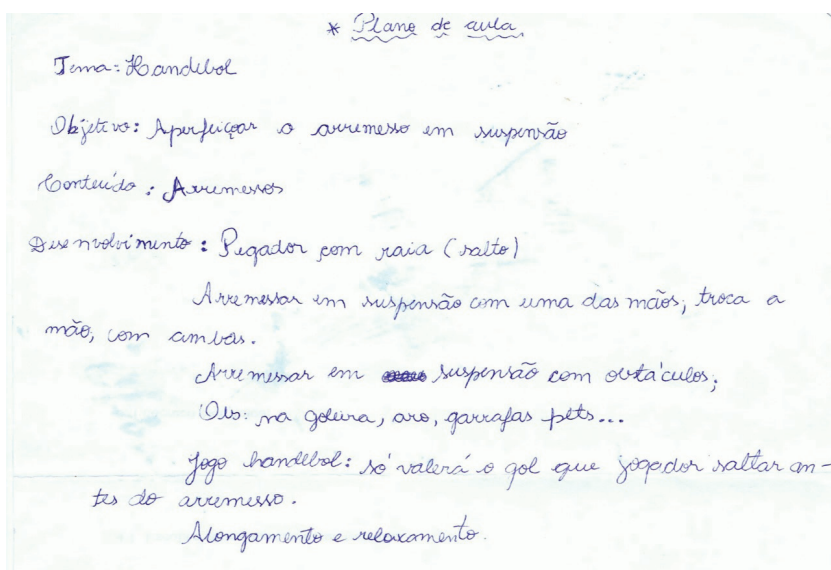 * Plano de aula
Tema: Handebol
Objetivo: Aperfeiçoar o arremesso em suspensão
Conteúdo: Arremessos
Desenvolvimento: Pegador com raia (salto)
Arremessar em suspensão com uma das mãos, troca a
mão, com ambas.
Arremessar em suspensão com obstáculos;
Obs: na goleira, aro, garrafas pets...
Jogo handebol: só valerá o gol que jogador saltar an-
tes do arremesso.
Alongamento e relaxamento.